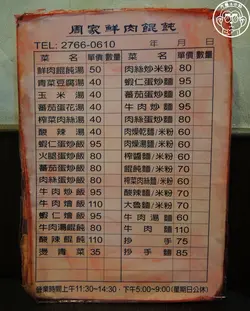 周家鮮肉餛飩
TEL: 2766-0610 年 月 日
菜 名 單價 數量 菜 名 單價 數量
鮮肉餛飩湯 50 肉絲炒麵/米粉 80
青菜豆腐湯 30 蝦仁蛋炒麵 95
玉米湯 40 蕃茄蛋炒麵 80
蕃茄蛋花湯 40 牛肉炒麵 95
榨菜肉絲湯 40 肉絲湯麵/米粉 80
酸辣湯 40 肉燥乾麵/米粉 60
蝦仁蛋炒飯 95 肉燥湯麵/米粉 60
火腿蛋炒飯 80 榨醬麵 60
蕃茄蛋炒飯 80 餛飩麵/米粉 70
肉絲蛋炒飯 80 榨菜肉絲麵/米粉 80
牛肉炒飯 95 酸辣麵/米粉 70
牛肉燴飯 110 大魯麵/米粉 70
蝦仁燴飯 110 牛肉湯麵 80
牛肉湯餛飩 80 牛肉麵 110
酸辣餛飩 110 抄手 75
燙青菜 35 抄手麵 85
營業時間上午11:30~14:30．下午5:00~9:00(星期日公休)